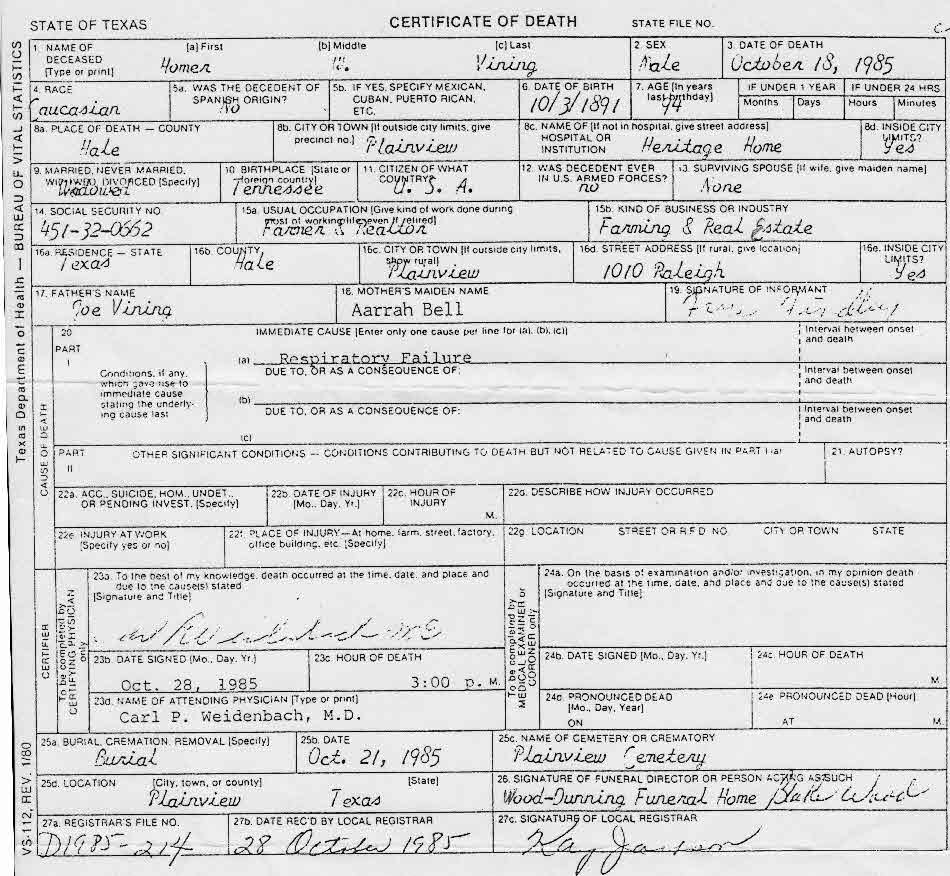 STATE OF TEXAS CERTIFICATE OF DEATH STATE FILE NO.
1. NAME OF DECEASED [Type or print] [a] First [b] Middle [c] Last 2. SEX 3. DATE OF DEATH
Homer W. Vining Male October 18, 1985
4. RACE 5a. WAS THE DECEDENT OF SPANISH ORIGIN? 5b. IF YES, SPECIFY MEXICAN, CUBAN, PUERTO RICAN, ETC. 6. DATE OF BIRTH 7. AGE [In years last birthday] IF UNDER 1 YEAR IF UNDER 24 HRS
Months Days Hours Minutes
Caucasian No 10/3/1891 94
8a. PLACE OF DEATH — COUNTY 8b. CITY OR TOWN [If outside city limits, give precinct no.] 8c. NAME OF [If not in hospital, give street address] HOSPITAL OR INSTITUTION 8d. INSIDE CITY LIMITS?
Hale Plainview Heritage Home Yes
9. MARRIED, NEVER MARRIED, WIDOWED, DIVORCED [Specify] 10. BIRTHPLACE [State or foreign country] 11. CITIZEN OF WHAT COUNTRY? 12. WAS DECEDENT EVER IN U.S. ARMED FORCES? 13. SURVIVING SPOUSE [If wife, give maiden name]
Widowed Tennessee U. S. A. no None
14. SOCIAL SECURITY NO. 15a. USUAL OCCUPATION [Give kind of work done during most of working life, even if retired] 15b. KIND OF BUSINESS OR INDUSTRY
451-32-0662 Farmer & Realtor Farming & Real Estate
16a. RESIDENCE — STATE 16b. COUNTY 16c. CITY OR TOWN [If outside city limits, show rural] 16d. STREET ADDRESS [If rural, give location] 16e. INSIDE CITY LIMITS?
Texas Hale Plainview 1010 Raleigh Yes
17. FATHER'S NAME 18. MOTHER'S MAIDEN NAME 19. SIGNATURE OF INFORMANT
Joe Vining Aarrah Bell
20 IMMEDIATE CAUSE [Enter only one cause per line for (a), (b), (c)] Interval between onset and death
PART I
(a) Respiratory Failure
Conditions, if any, which gave rise to immediate cause stating the underlying cause last
DUE TO, OR AS A CONSEQUENCE OF: Interval between onset and death
(b)
DUE TO, OR AS A CONSEQUENCE OF: Interval between onset and death
(c)
PART II OTHER SIGNIFICANT CONDITIONS — CONDITIONS CONTRIBUTING TO DEATH BUT NOT RELATED TO CAUSE GIVEN IN PART I (a) 21. AUTOPSY?
22a. ACC., SUICIDE, HOM., UNDET., OR PENDING INVEST. [Specify] 22b. DATE OF INJURY [Mo., Day, Yr.] 22c. HOUR OF INJURY M. 22d. DESCRIBE HOW INJURY OCCURRED
22e. INJURY AT WORK [Specify yes or no] 22f. PLACE OF INJURY—At home, farm, street, factory, office building, etc. [Specify] 22g. LOCATION STREET OR R.F.D. NO. CITY OR TOWN STATE
CERTIFIER
To be completed by CERTIFYING PHYSICIAN only
23a. To the best of my knowledge, death occurred at the time, date, and place and due to the cause(s) stated
[Signature and Title]
23b. DATE SIGNED [Mo., Day, Yr.] 23c. HOUR OF DEATH
Oct. 28, 1985 3:00 p. M.
23d. NAME OF ATTENDING PHYSICIAN [Type or print]
Carl P. Weidenbach, M.D.
To be completed by MEDICAL EXAMINER or CORONER only
24a. On the basis of examination and/or investigation, in my opinion death occurred at the time, date, and place and due to the cause(s) stated
[Signature and Title]
24b. DATE SIGNED [Mo., Day, Yr.] 24c. HOUR OF DEATH M.
24d. PRONOUNCED DEAD [Mo., Day, Year] ON 24e. PRONOUNCED DEAD [Hour] AT M.
25a. BURIAL, CREMATION, REMOVAL [Specify] 25b. DATE 25c. NAME OF CEMETERY OR CREMATORY
Burial Oct. 21, 1985 Plainview Cemetery
25d. LOCATION [City, town, or county] [State] 26. SIGNATURE OF FUNERAL DIRECTOR OR PERSON ACTING AS SUCH
Plainview Texas Wood-Dunning Funeral Home Blake Wood
27a. REGISTRAR'S FILE NO. 27b. DATE REC'D BY LOCAL REGISTRAR 27c. SIGNATURE OF LOCAL REGISTRAR
D1985-214 28 October 1985 Kay
CAUSE OF DEATH
Texas Department of Health — BUREAU OF VITAL STATISTICS
VS-112, REV. 1/80